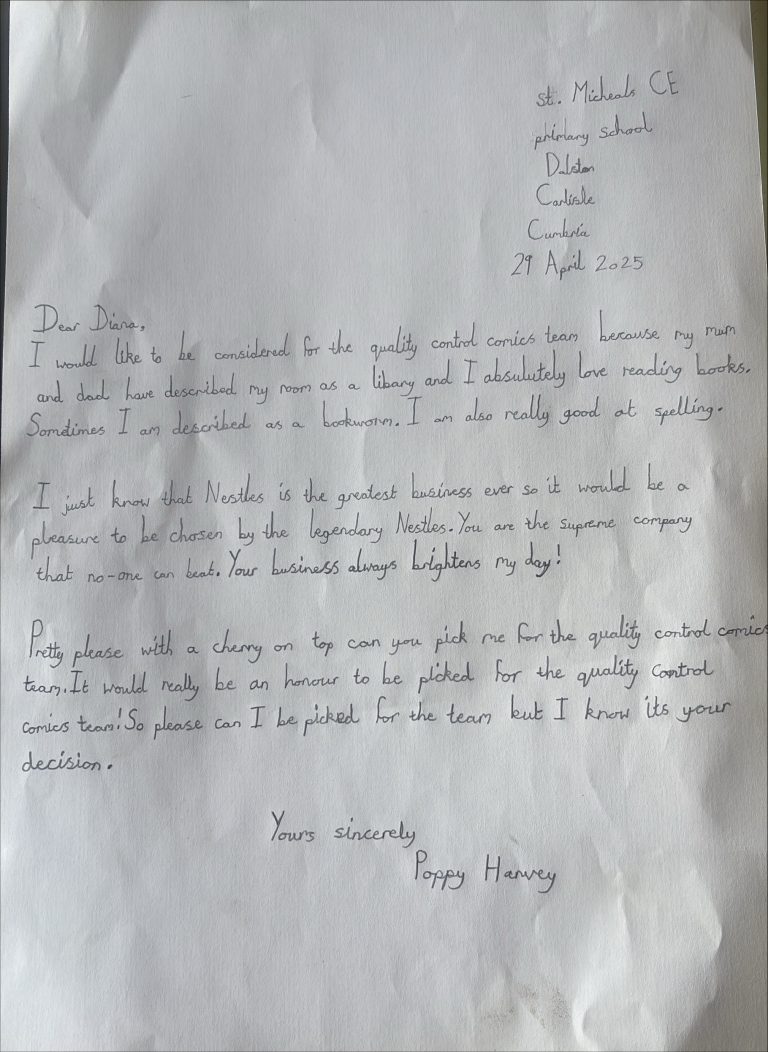 st. Micheals CE
primary school
Dalston
Carlisle
Cumbria
29 April 2025
Dear Diana,
I would like to be considered for the quality control comics team because my mum
and dad have described my room as a libary and I absulutely love reading books.
Sometimes I am described as a bookworm. I am also really good at spelling.
I just know that Nestles is the greatest business ever so it would be a
pleasure to be chosen by the legendary Nestles. You are the supreme company
that no-one can beat. Your business always brightens my day!
Pretty please with a cherry on top can you pick me for the quality control comics
team. It would really be an honour to be picked for the quality control
comics team! So please can I be picked for the team but I know its your
decision.
Yours sincerely
Poppy Harvey